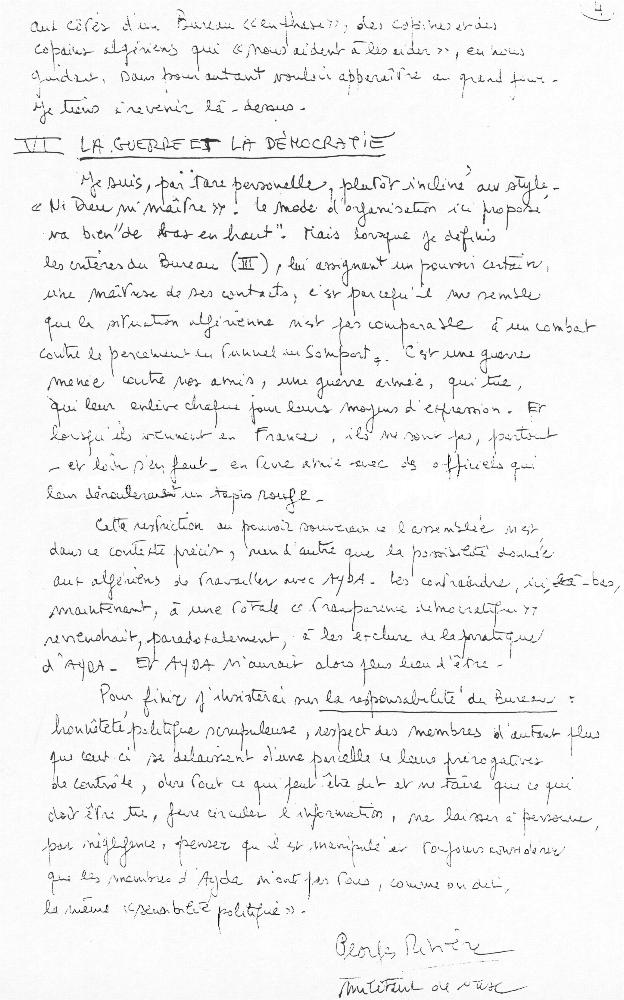 4
aux côtés d'un Bureau « en phase », des copines et des
copains algériens qui « nous aident à les aider », en nous
guidant, sans pour autant vouloir apparaître au grand jour.
Je tiens à revenir là-dessus.
VI LA GUERRE ET LA DÉMOCRATIE
Je suis, par tare personnelle, plutôt incliné au style
« Ni Dieu ni maître ». Le mode d'organisation ici proposé
va bien "de bas en haut". Mais lorsque je définis
les critères du Bureau (III), lui assignant un pouvoir certain,
une maîtrise de ses contacts, c'est parcequ'il me semble
que la situation algérienne n'est pas comparable à un combat
contre le percement du Tunnel du Somport. C'est une guerre
menée contre nos amis, une guerre armée, qui tue,
qui leur enlève chaque jour leurs moyens d'expression. Et
lorsqu'ils viennent en France, ils ne sont pas, partout
- et loin s'en faut - en terre amie avec des officiels qui
leur dérouleraient un tapis rouge.
Cette restriction au pouvoir souverain de l'assemblée n'est
dans ce contexte précis, rien d'autre que la possibilité donnée
aux algériens de travailler avec AYDA. Les contraindre, ici, là-bas,
maintenant, à une totale « transparence démocratique »
reviendrait, paradoxalement, à les exclure de la pratique
d'AYDA. Et AYDA n'aurait alors plus lieu d'être.
Pour finir j'insisterai sur la responsabilité du Bureau :
honnêteté politique scrupuleuse, respect des membres d'autant plus
que ceux ci se délaissent d'une parcelle de leurs prérogatives
de contrôle, dire tout ce qui peut être dit et ne taire que ce qui
doit être tu, faire circuler l'information, ne laisser à personne,
par négligence, penser qu'il est manipulé et toujours considérer
que les membres d'Ayda n'ont pas tous, comme on dit,
la même « sensibilité politique ».
Georges Rivière
Militant de